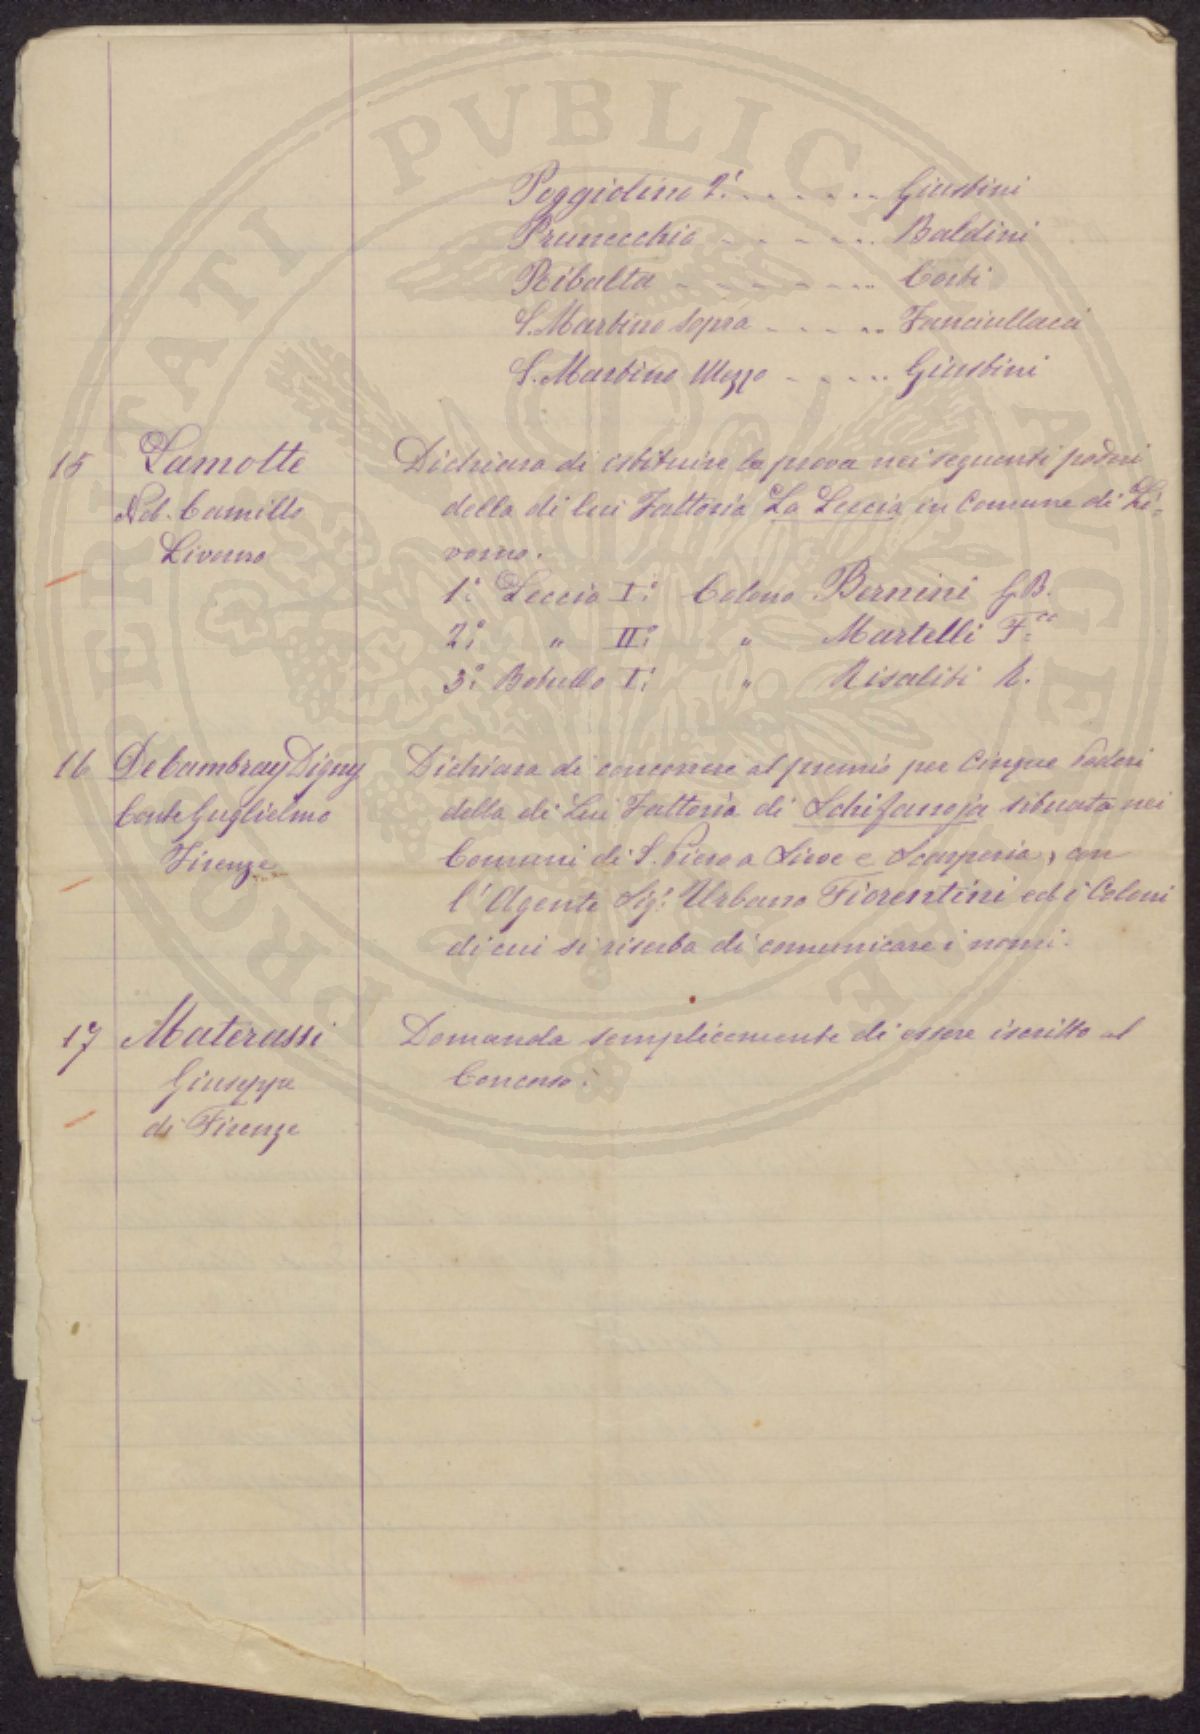 Poggiolino 2.° - - - - - - Giustini
Prunecchio - - - - - - Baldini
Ribalta - - - - - - - - Corti
S. Martino Sopra - - - - - Fanciullacci
S. Martino Mezzo - - - - - Giustini
15 Lamotte Dichiara di istituire la prova nei seguenti poderi
Nob. Camillo della di lui Fattoria La Leccia in Comune di Li-
Livorno vorno.
1.° Leccia I.° Colono Bernini G. B.
2.° " II.° " Martelli F.co
3.° Botullo I.° " Risaliti R.
16 De Cambray Digny Dichiara di concorrere al premio per Cinque Poderi
Conte Guglielmo della di Lui Fattoria di Schifanoja situata nei
Firenze Comuni di S. Piero a Sieve e Scarperia, con
l'Agente Sig.r Urbano Fiorentini ed i Coloni
di cui si riserba di comunicare i nomi.
17 Materassi Domanda semplicemente di essere iscritto al
Giuseppe Concorso.
di Firenze
PROSPERITATI PVBLICAE AVGENDAE